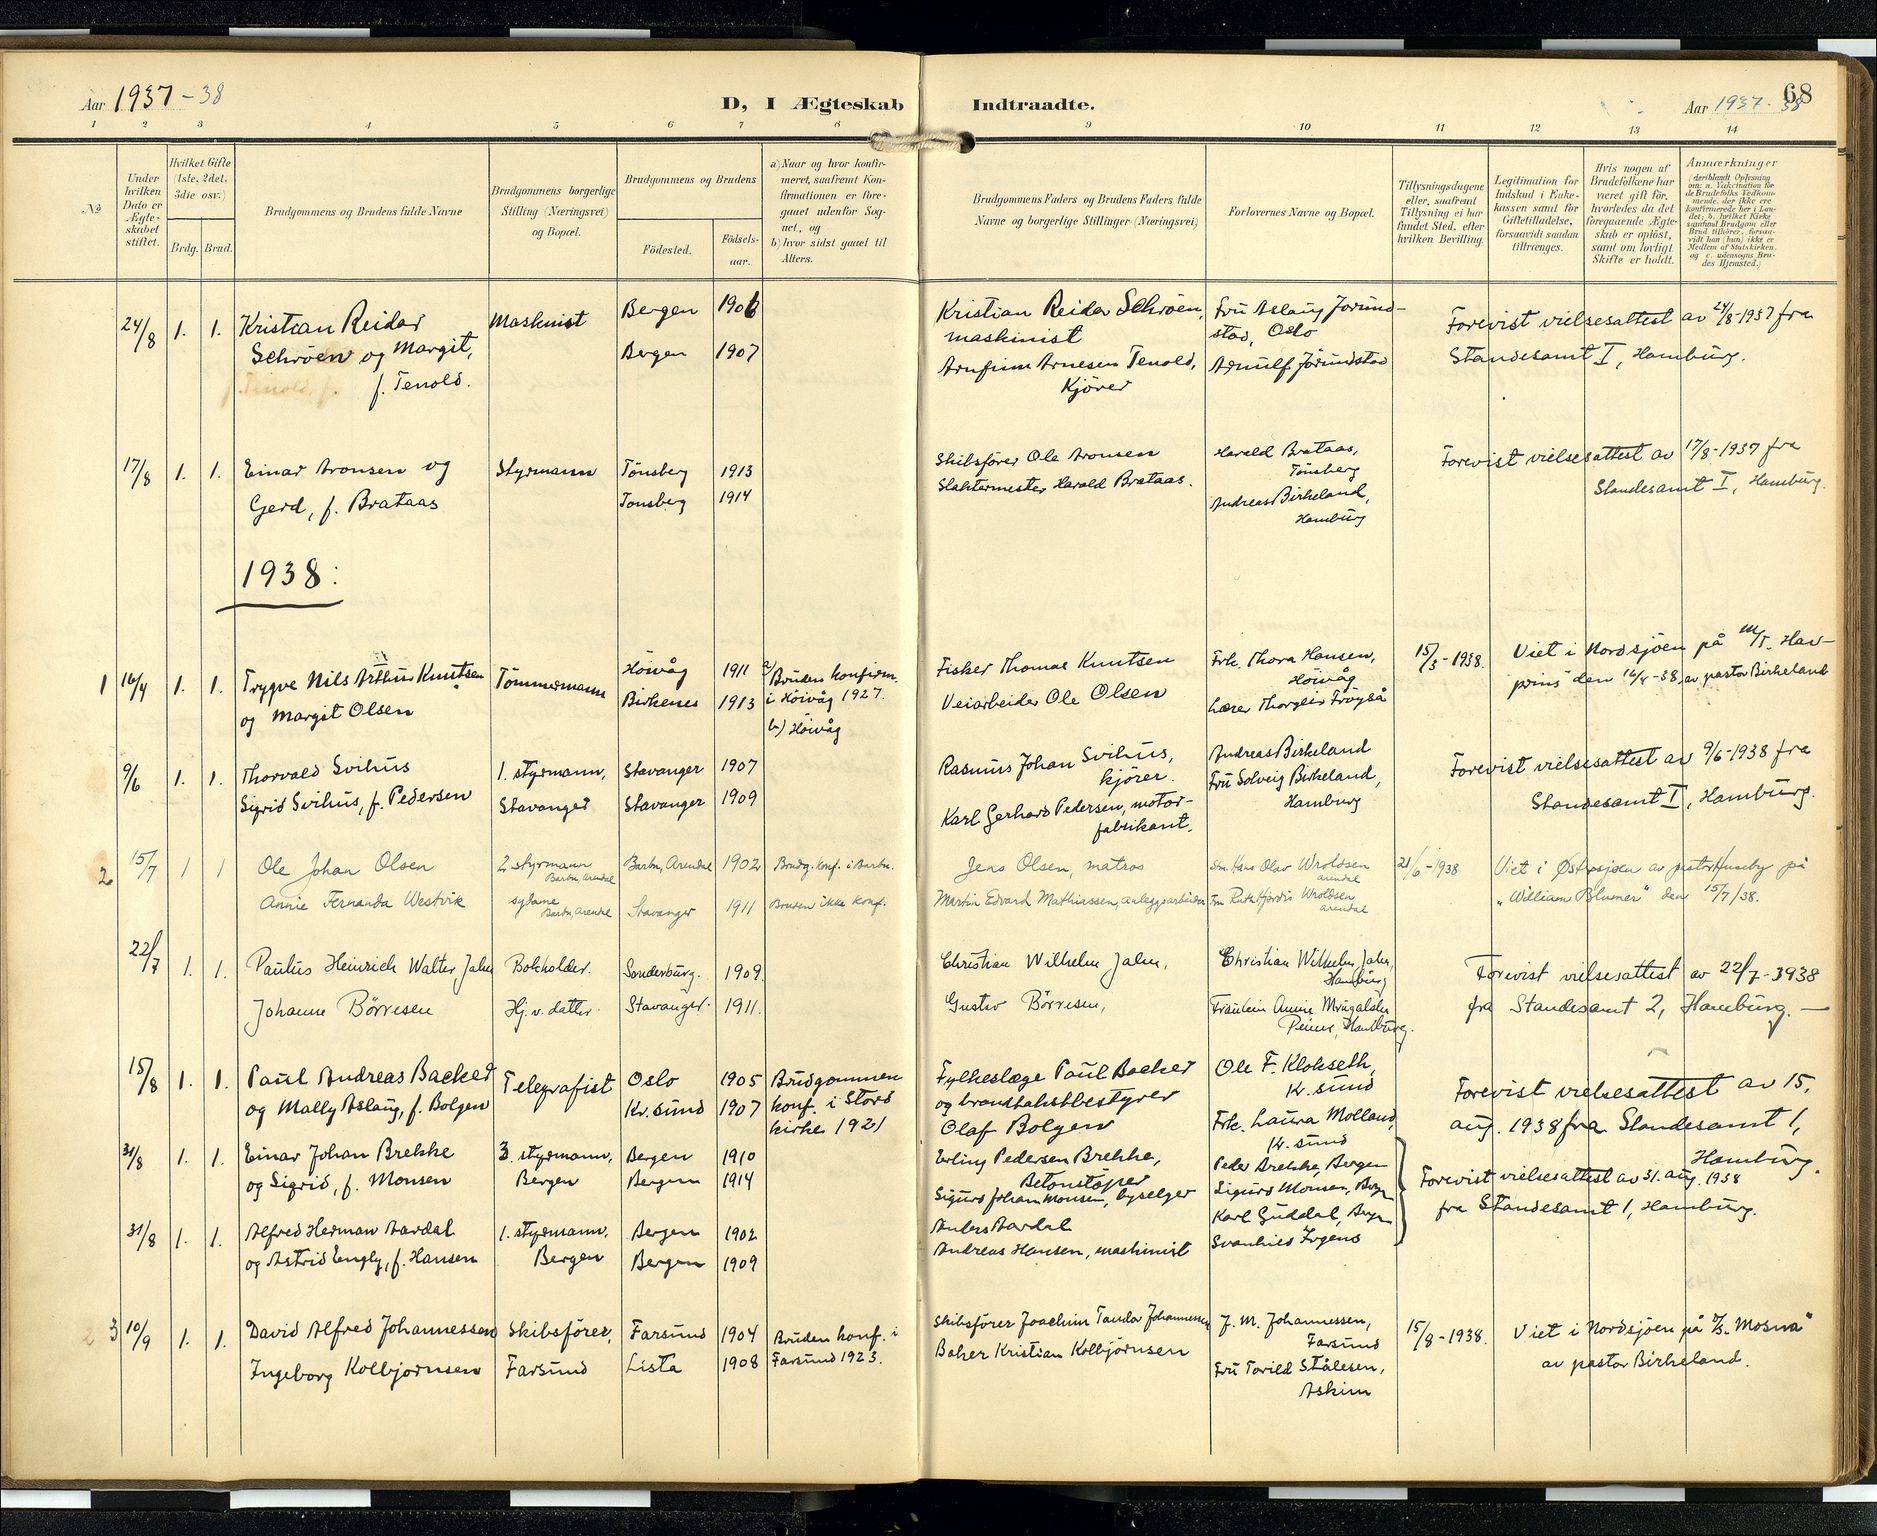 68
Aar 1937-38
D, I Ægteskab Indtraadte.
Aar 1937-38
1 2 3 4 5 6 7 8 9 10 11 12 13 14
No
Under hvilken Dato er Ægteskabet stiftet.
Hvilket Gifte (1ste, 2det, 3die osv.)
Brdg. Brud.
Brudgommens og Brudens fulde Navne
Brudgommens borgerlige Stilling (Næringsvei) og Bopæl.
Brudgommens og Brudens
Födested.
Födselsaar.
a) Naar og hvor konfirmeret, saafremt Konfirmationen er foregaaet udenfor Sognet, og
b) hvor sidst gaaet til Alters.
Brudgommens Faders og Brudens Faders fulde Navne og borgerlige Stillinger (Næringsvei)
Forlovernes Navne og Bopæl.
Tillysningsdagene eller, saafremt Tillysning ei har fundet Sted, efter hvilken Bevilling.
Legitimation for Indskud i Enkekassen samt for Giftetilladelse, forsaavidt saadan tiltrænges.
Hvis nogen af Brudefolkene har været gift før, hvorledes da det foregaaende Ægteskab er oplöst, samt om lovligt Skifte er holdt.
Anmærkninger (deriblandt Oplysning om: a. Vakcination for de Brudefolks Vedkommende, der ikke ere konfirmerede her i Landet; b. hvilket Kirkesamfund Brudgom eller Brud tilhörer, forsaavidt han (hun) ikke er Medlem af Statskirken, og c. udensogns Brudes Hjemsted.)
24/8 1. 1. Kristian Reidar Schröen og Margit, f. Tenold. Maskinist Bergen 1906 Bergen 1907
Kristian Reidar Schröen, maskinist
Arnfinn Arnesen Tenold, Kjörer
Fru Aslaug Jorundstad, Oslo
Arnulf Jörundstad
Forevist vielsesattest av 24/8-1937 fra Standesamt I, Hamburg.
17/8 1. 1. Einar Aronsen og Gerd, f. Brataas Styrmann Tönsberg 1913 Tonsberg 1914
Skibsförer Ole Aronsen
Slaktermester Harald Brataas.
Harald Brataas, Tönsberg
Andreas Birkeland, Hamburg
Forevist vielsesattest av 17/8-1937 fra Standesamt I, Hamburg.
1938:
1 16/4 1. 1. Trygve Nils Arthur Knutsen og Margit Olsen Tömmermann Höivåg 1911 Birkenes 1913
a) Bruden konfirm. i Höivåg 1927.
b) Höivåg
Fisker Thomas Knutsen
Veiarbeider Ole Olsen
Frk. Thora Hansen, Höivåg
Lærer Thorleif Fröyså
15/3-1938.
Viet i Nordsjöen på M/T. Havprins den 16/4-38, av pastor Birkeland
9/6 1. 1. Thorvald Svihus
Sigrid Svihus, f. Pedersen
1. styrmann, Stavanger
Stavanger 1907
Stavanger 1909
Rasmus Johan Svihus, kjörer.
Karl Gerhard Pedersen, motorfabrikant.
Andreas Birkeland
Fru Solveig Birkeland, Hamburg
Forevist vielsesattest av 9/6-1938 fra Standesamt I, Hamburg.
2 15/7 1 1 Ole Johan Olsen
Annie Fernanda Westvik
2 styrmann Barbu, Arendal
sydame Barbu, Arendal
Barbu, Arendal 1902
Stavanger 1911
Brudg. konf. i Barbu.
Bruden ikke konf.
Jens Olsen, matros
Martin Edvard Mathiassen, anleggsarbeider
Hans Olav Wroldsen Arendal
Fru Ruth Hjördis Wroldsen Arendal
21/6-1938
Viet i Östersjöen av pastor Huseby på „William Blumer" den 15/7/38.
22/7 1. 1. Paulus Heinrich Walter Jahn
Johanne Börresen
Bokholder.
Hj. v. datter.
Sonderburg. 1909
Stavanger. 1911.
Christian Wilhelm Jahn,
Gustav Börresen,
Christian Wilhelm Jahn, Hamburg
Fräulein Annine, Hamburg.
Forevist vielsesattest av 22/7-3938 fra Standesamt 2, Hamburg.
15/8 1. 1. Paul Andreas Backer og Mally Aslaug, f. Bolgen
Telegrafist
Oslo 1905
Kr.sund 1907
Brudgommen konf. i Stord kirke 1921
Fylkeslæge Paul Backer og brandtakstbestyrer Olaf Bolgen
Ole F. Klokseth, Kr. sund
Frk. Laura Molland, Kr. sund
Forevist vielsesattest av 15. aug. 1938 fra Standesamt 1, Hamburg.
31/8 1. 1. Einar Johan Brekke og Sigrid, f. Monsen
3. styrmann, Bergen
Bergen 1910
Bergen 1914
Erling Pedersen Brekke, Betonstöper
Sigurd Johan Monsen, byselger
Peder Brekke, Bergen
Sigurd Monsen, Bergen
Forevist vielsesattest av 31. aug. 1938 fra Standesamt 1, Hamburg.
31/8 1. 1. Alfred Herman Aardal og Astrid Engly, f. Hansen
1. styrmann, Bergen
Bergen 1902
Bergen 1909
Anders Aardal
Andreas Hansen, maskinist
Karl Guddal, Bergen
Svanhild Irgens
3 10/9 1. 1. David Alfred Johannessen
Ingeborg Kolbjörnsen
Skibsförer, Farsund
Farsund 1904
Lista 1908
Bruden konf. i Farsund 1923.
Skibsförer Joachim Tandor Johannessen
Baker Kristian Kolbjörnsen
J. M. Johannessen, Farsund
Fru Torild Stålesen, Askim
15/8-1938.
Viet i Nordsjöen på D/S „Mosna" av pastor Birkeland.